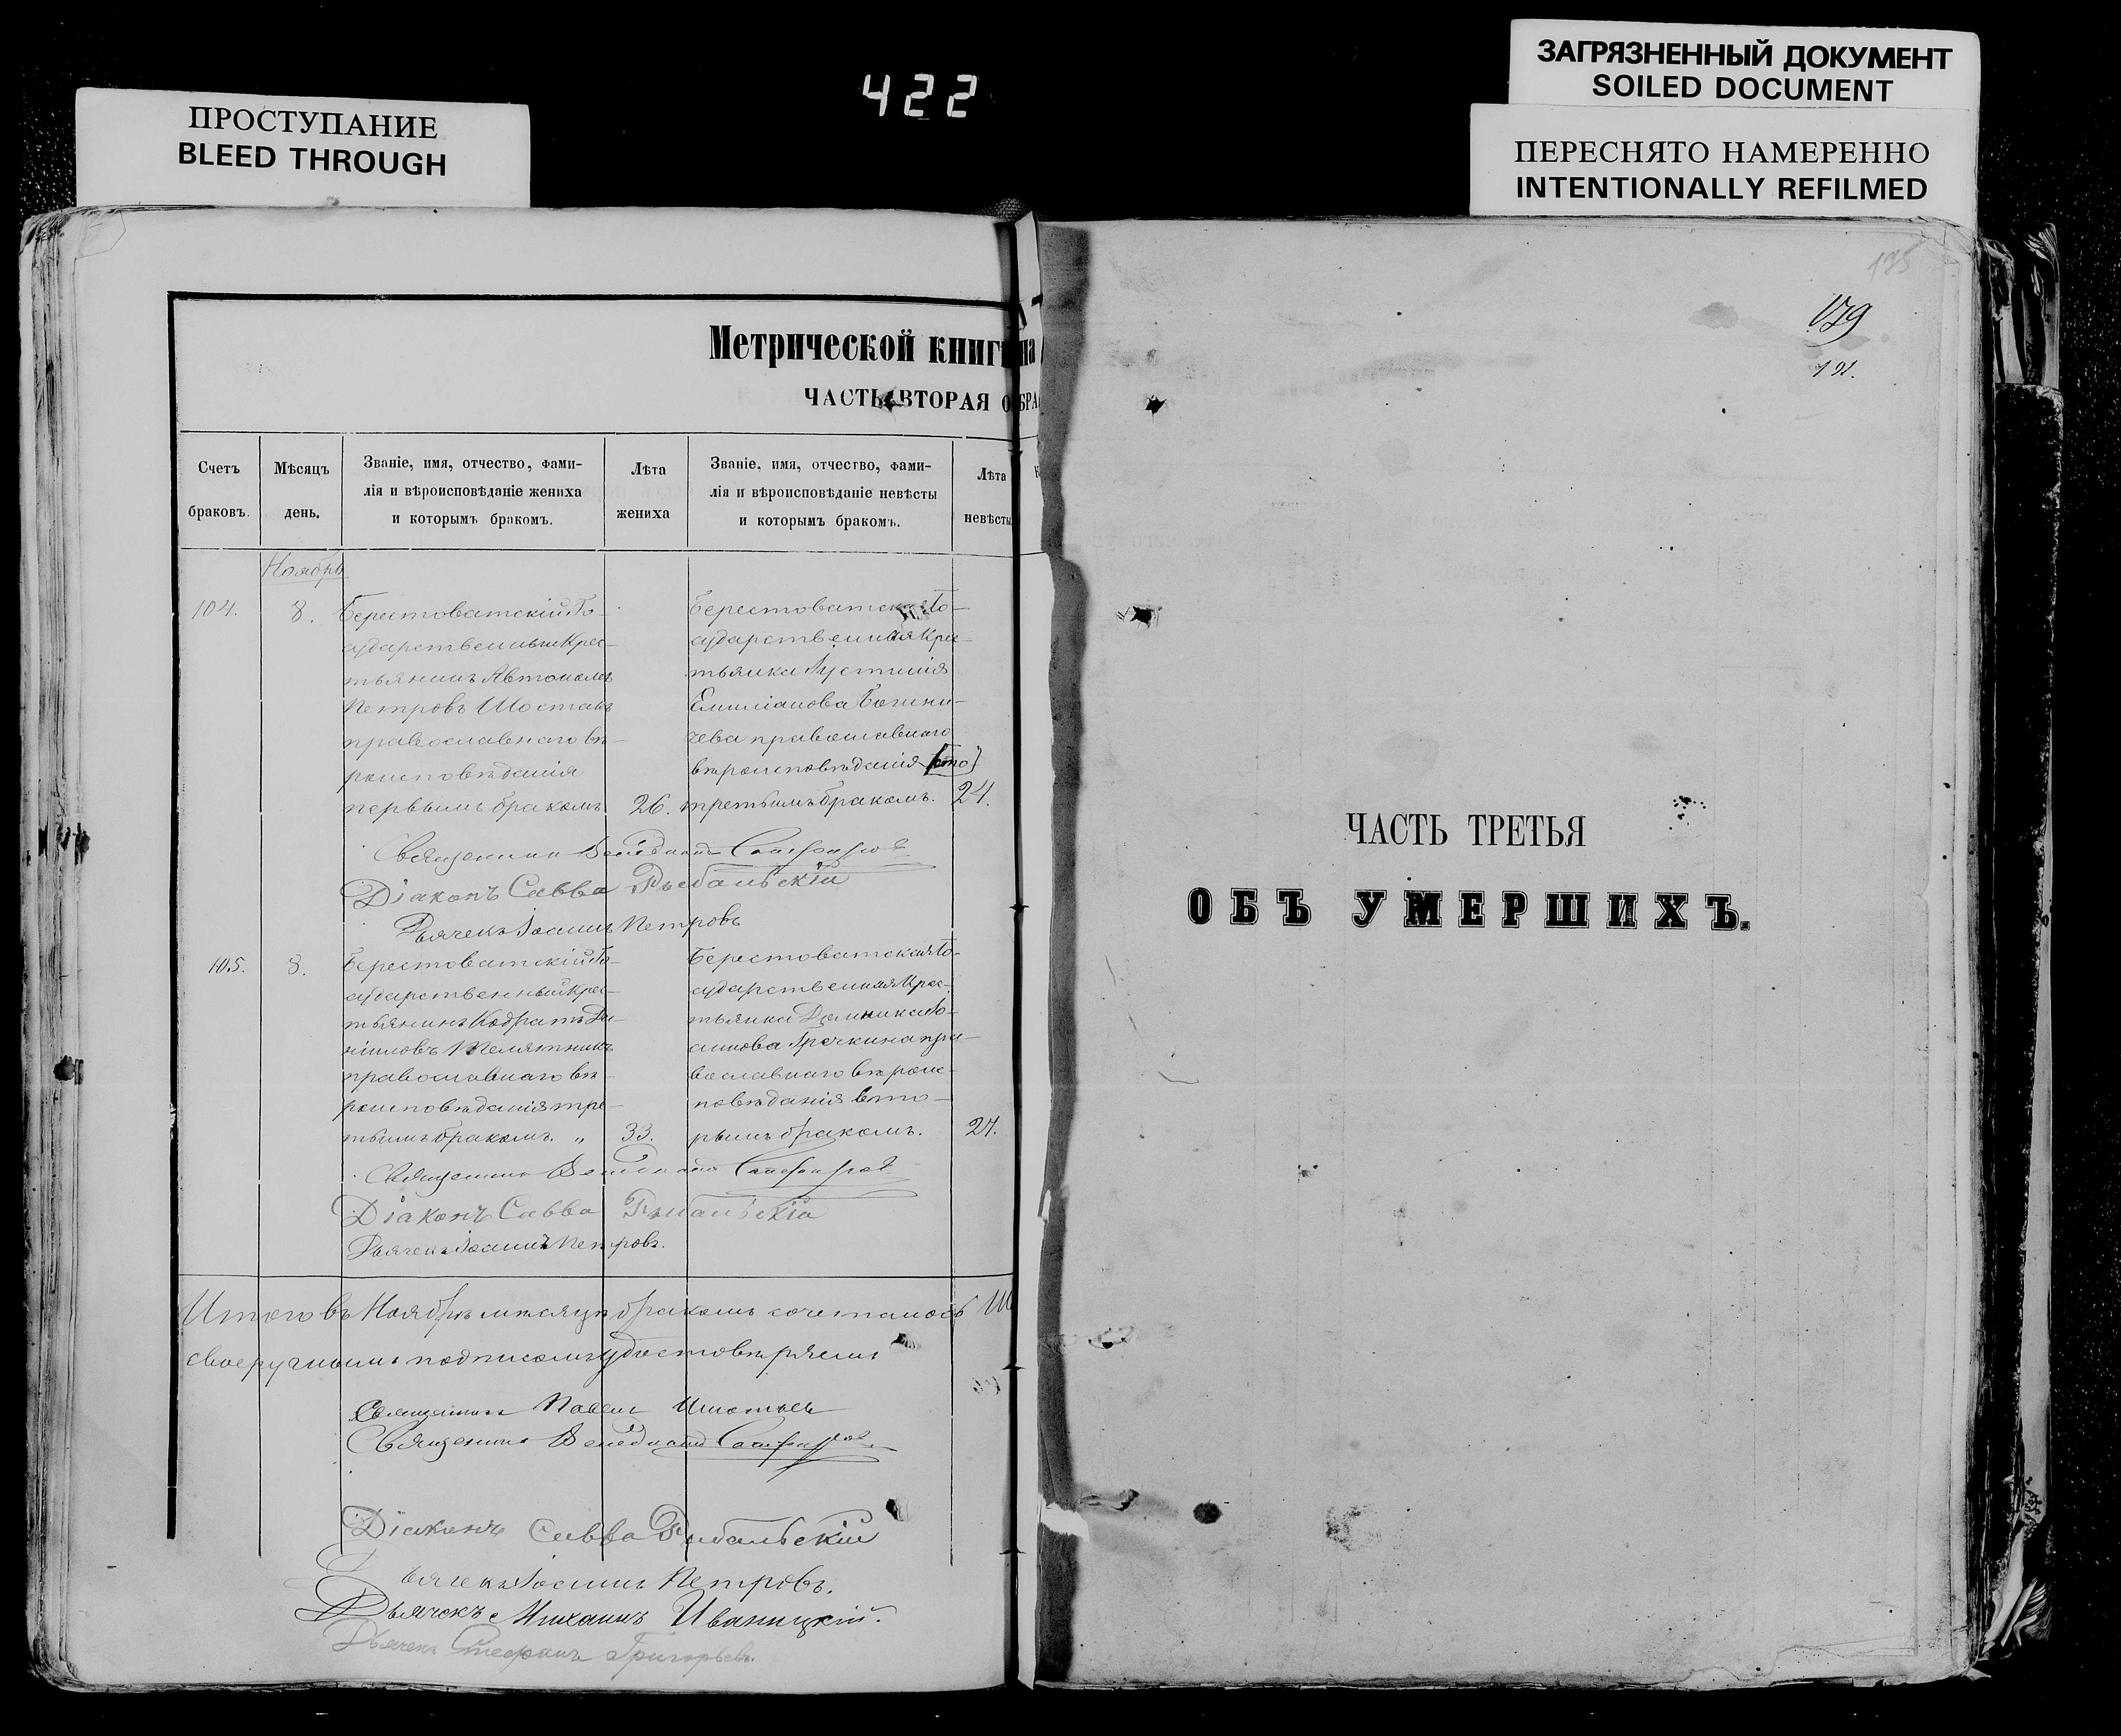 ПРОСТУПАНИЕ
BLEED THROUGH
422
ЗАГРЯЗНЕННЫЙ ДОКУМЕНТ
SOILED DOCUMENT
ПЕРЕСНЯТО НАМЕРЕННО
INTENTIONALLY REFILMED
Метрической книги на
ЧАСТЬ ВТОРАЯ О БРА
Счетъ браковъ.
Мѣсяцъ день.
Званіе, имя, отчество, фами-
лія и вѣроисповѣданіе жениха
и которымъ бракомъ.
Лѣта жениха
Званіе, имя, отчество, фами-
лія и вѣроисповѣданіе невѣсты
и которымъ бракомъ.
Лѣта невѣсты
Ноябрь
104.
8.
Берестоватскій Го-
сударственный Крес-
тьянинъ Автономъ
Петровъ Шостакъ
православнаго вѣ-
роисповѣданія
первымъ бракомъ
26.
Берестоватская Го-
сударственная Крес-
тьянка Іустинія
Емиліанова
православнаго
вѣроисповѣданія (вто)
третьимъ бракомъ.
24.
Священникъ
Діаконъ Савва Рыбальскій
Дьячекъ Іоаннъ Петровъ
105.
8.
Берестоватскій Го-
сударственный Крес-
тьянинъ Кодратъ Да-
ніиловъ Телятникъ
православнаго вѣ-
роисповѣданія тре-
тьимъ бракомъ. „
33.
Берестоватская Го-
сударственная Крес-
тьянка Домника Іо-
аннова Гречкина пра-
вославнаго вѣроис-
повѣданія вто-
рымъ бракомъ.
24.
Священникъ
Діаконъ Савва Рыбальскій
Дьячекъ Іоаннъ Петровъ.
Итого въ Ноябрѣ мѣсяцѣ бракомъ сочеталось
своеручнымъ подписомъ удостовѣряемъ
Священникъ Павелъ
Священникъ
Діаконъ Савва Рыбальскій
Дьячекъ Іоаннъ Петровъ.
Дьячекъ Михаилъ Иваницкій.
Дьячекъ Стефанъ Григорьевъ.
179
191.
ЧАСТЬ ТРЕТЬЯ
ОБЪ УМЕРШИХЪ.